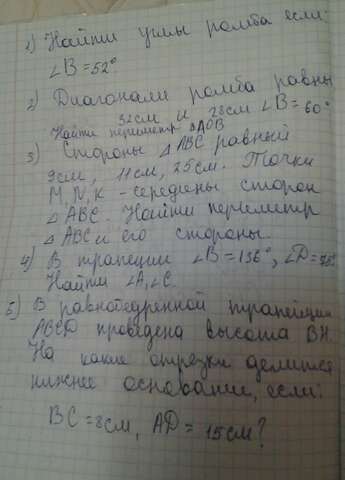 1) Найти углы ромба если:
∠B=52°.
2) Диагонали ромба равны
32см и 28см ∠B=60°
Найти периметр △AOB
3) Стороны △ABC равный
9см, 11см, 25см. Точки
M, N, K - середины сторон
△ABC. Найти периметр
△ABC и его стороны.
4) В трапеции ∠B=136°, ∠D=
Найти ∠A, ∠C.
5) В равнобедренной трапеции
ABCD проведена высота BH.
На какие отрезки делится
нижнее основание, если:
BC=8см, AD=15см?